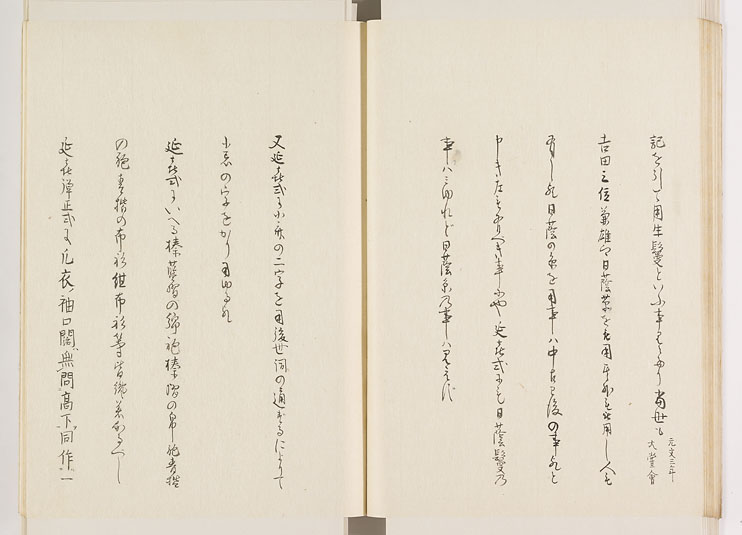 記を引て用生鬘といふ事もみゆり當世も
元文三年
大甞會
吉田三位兼雄卿日蔭蔓を被用平緒をも被用し人も
有しか是日蔭の糸を用事ハ中古已後の事なと
申き左も可有へき事にや延喜式にも日蔭鬘乃
事ハミゆれど日蔭糸乃事ハ見えず
又延喜式に小斎の二字を用後世詞の通するによりて
小忌の字をかり用ゆる也
延喜式にいへる榛藍摺の綿袍榛摺の帛袍青摺
の袍青摺の布衫紺布衫等皆縫着あるへし
延喜弾正式に凡衣袖口闊無問高下同作一